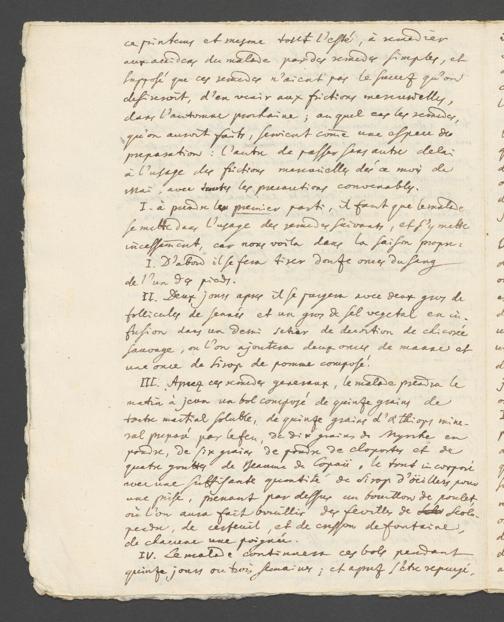 ce printems et mesme tout l'esté, à remedier
aux accidens du malade par des remedes simples, et
supposé que ces remedes n'aient pas le succez qu'on
desireroit, d'en venir aux frictions mercurielles,
dans l'automne prochaine; auquel cas les remedes,
qu'on auroit faits, serviront come une espece de
preparation: l'autre de passer sans autre delai
à l'usage des frictions mercurielles dès ce mois de
mai, avec toutes les precautions convenables.
I. à prendre le premier parti, il faut que le malade
se mette dans l'usage des remedes suivants, et s'y mette
incessamment, car nous voila dans la saison propre.
I. D'abord il se fera tirer douze onces du sang
de l'un des pieds.
II. Deux jours apres il se purgera avec deux gros de
follicules de senné et un gros de sel vegetal en in-
fusion dans un demi setier de decoction de chicorée
sauvage, où l'on ajoutera deux onces de manne et
une once de sirop de pomme composé.
III. Aprez ces remedes generaux, le malade prendra le
matin à jeun un bol composé de quinze grains de
tartre martial soluble, de quinze grains d'æthiops mine-
ral preparé par le feu, de dix grains de myrrhe en
poudre, de six grains de poudre de cloportes et de
quatre gouttes de beaume de Copaü, le tout incorporé
avec une suffisante quantité de sirop d'œillets pour
une prise, prenant par dessus un bouillon de poulet
où l'on aura fait bouillir des feuilles de scolo-
pendre, de cerfeuil, et de cresson de fontaine,
de chacune une poignée.
IV. Le malade continuera ces bols pendant
quinze jours ou trois semaines; et aprez s'etre repurgé,